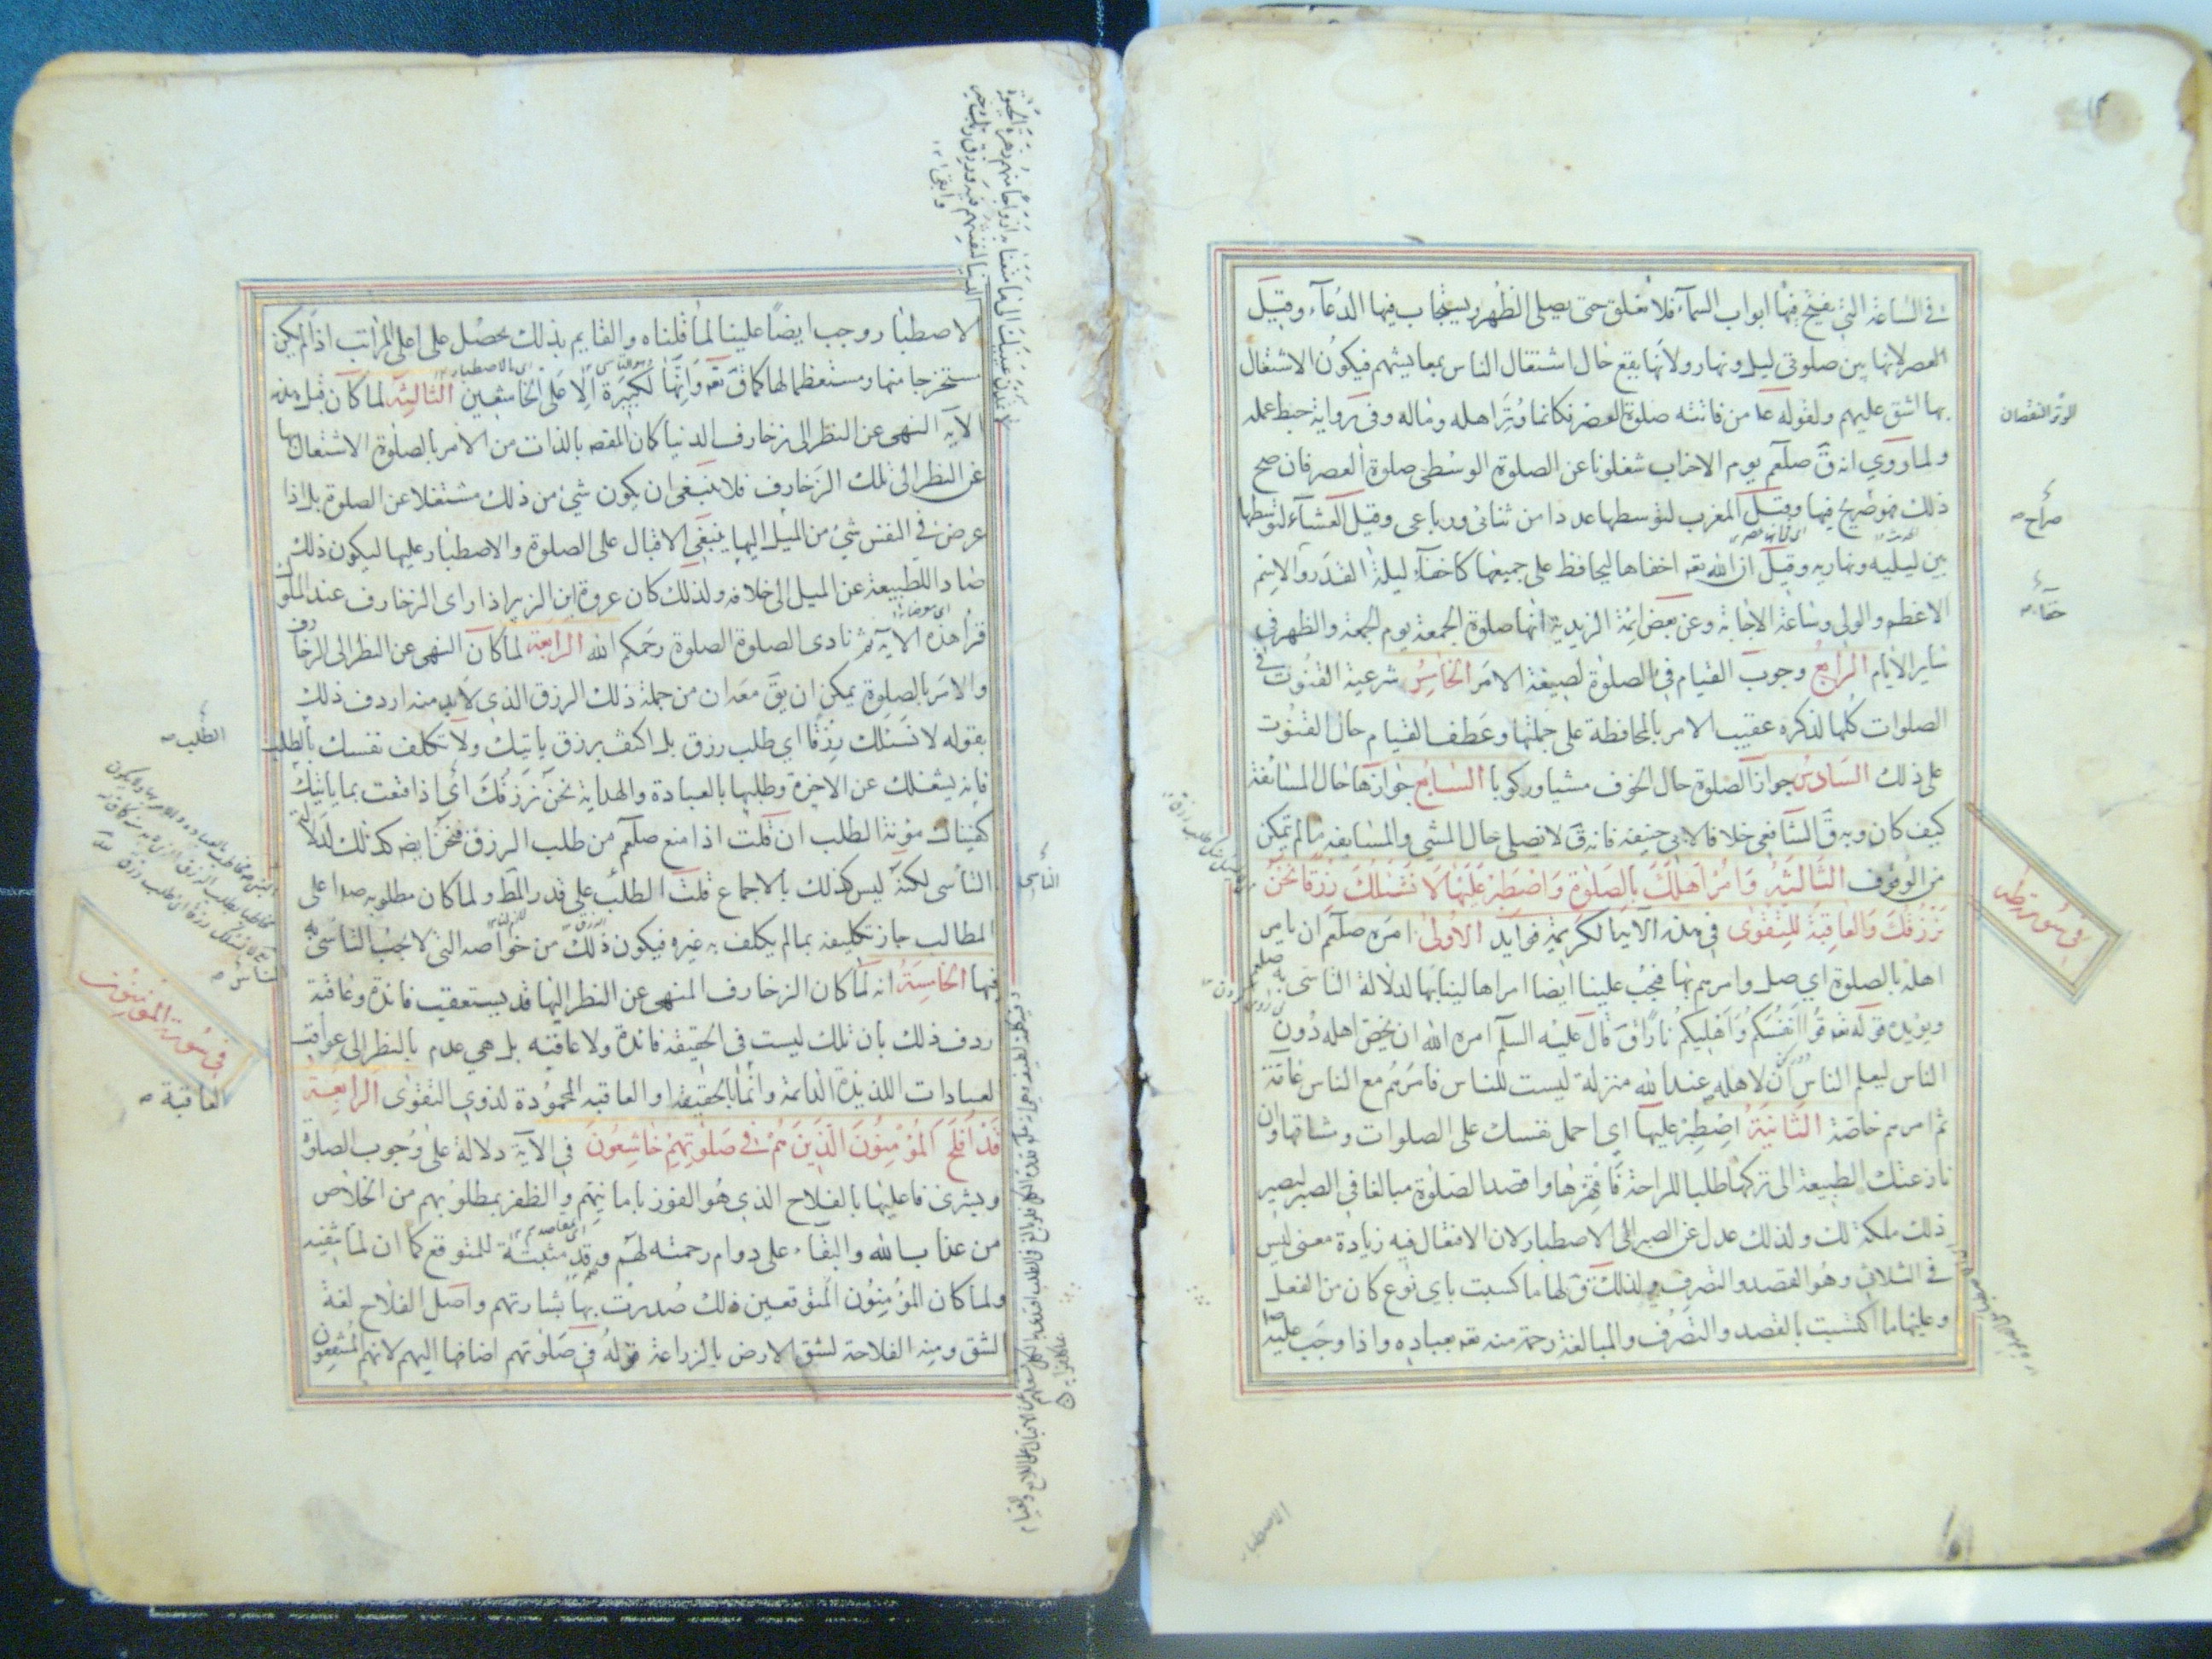 في الساعة التي تفتح فيها ابواب السماء فلا تغلق حتى يصلى الظهر ويستجاب فيها الدعآء وقيل
العصر لانها بين صلوتي ليل ونهار ولانها يقع حال اشتغال الناس بمعايشهم فيكون الاشتغال
بها اشق عليهم ولقوله عا من فاتته صلوة العصر فكانما وتر اهله وماله وفى رواية حبط عمله
ولما روي انه قَ صلعم يوم الاحزاب شغلونا عن الصلوة الوسطى صلوة العصر فان صح
ذلك فهو صريح فيها وقيل المغرب لتوسطها عددا من ثنائى ورباعى وقيل العشآء لتوسطها
بين ليليه ونهاريه وقيل ان الله تعه اخفاها ليحافظ على جميعها كاخفآء ليلة القدر والاسم
الاعظم والولى وساعة الاجابة وعن بعض ائمة الزيدية انها صلوة الجمعة يوم الجمعة والظهر في
ساير الايام الرابع وجوب القيام في الصلوة لصيغة الامر الخامس شرعية القنوت في
الصلوات كلها لذكره عقيب الامر بالمحافظة على جملتها وعطف القيام حال القنوت
على ذلك السادس جواز الصلوة حال الخوف مشيا وركوبا السابع جوازها حال المسايفة
كيف كان وبه قَ الشافعي خلافا لابي حنيفه فانه قَ لا تصلى حال المشي والمسايفه ما لم تمكن
من الوقوف الثالثة وَامُرْ اَهلَكَ بالصَلوة وَاصْطَبِرْ عَلَيها لَا نَسْئَلُكَ رِزْقًا نَحْنُ
نَرْزُقُكَ وَالعَاقِبَةُ لِلتَّقْوى في هذه الآية الكريمة فوايد الاولى امره صلعم ان يامر
اهله بالصلوة اي صل وامرهم بها فيجب علينا ايضا امر اهالينا بها لدلالة التاسى به
ويؤيده قوله تعه قُوا اَنْفُسَكُمْ وَاَهْلِيكُمْ نارًا وقَ قال عليه السلم امره الله ان يخص اهله دون
الناس ليعلم الناس ان لاهله عند الله منزلة ليست للناس فامرهم مع الناس عامّة
ثم امرهم خاصة الثانية اصطبر عليها اي احمل نفسك على الصلوات ومشاقها وان
نازعتك الطبيعة الى تركها طلبا للراحة فاقهرها واقصد الصلوة مبالغا في الصبر ليصير
ذلك ملكة لك ولذلك عدل عن الصبر الى الاصطبار لان الافتعال فيه زيادة معنى ليس
في الثلاثى وهو القصد والتصرف ولذلك قَ لها ما كسبت باي نوع كان من الفعل
وعليها ما اكتسبت بالقصد والتصرف والمبالغة رحمة منه تعه بعباده واذا وجب عليه
الوتر النقصان
صراح
في سورة طه
الاصطبار
الاصطبار وجب ايضًا علينا لما قلناه والقايم بذلك يحصل على اعلى المراتب اذا لم يكن
مستخرجا منها ومستعظما لها كما قَ تعه وَاِنَّها لَكَبِيرَة اِلا عَلى الخاشِعين الثالثة لما كان قبل هذه
الآيه النهى عن النظر الى زخارف الدنيا كان المقصه بالذات من الامر بالصلوة الاشتغال بها
عن النظر الى تلك الزخارف فلا ينبغى ان يكون شيء من ذلك مشتغلا عن الصلوة بل اذا
عرض في النفس شيء من الميل اليها ينبغي الاقبال على الصلوة والاصطبار عليها ليكون ذلك
صادا للطبيعة عن الميل الى خلافه ولذلك كان عروة ابن الزبير اذا راى الزخارف عند الملوك
قرأ هذه الآيه ثم نادى الصلوة الصلوة رحمكم الله الرابعة لما كان النهى عن النظر الى الزخارف
والامر بالصلوة يمكن ان يقَ معه ان من جملة ذلك الرزق الذي لابد منه اردف ذلك
بقوله لا نَسئلك رِزقًا اي طلب رزق بل اكتف برزق ياتيك ولا تكلف نفسك بالطلب
فانه يشغلك عن الاخرة وطلبها بالعبادة والهداية نحن نرزقك اي اذا قنعت بما ياتيك
كفيناك مؤنة الطلب ان قلت اذا منع صلعم من طلب الرزق فنحن ايضه كذلك لدلالة
التأسى لكنه ليس كذلك بالاجماع قلت الطلب على قدر المط ولما كان مطلوبه صه اعلى
المطالب جاز تكليفه بمالم يكلف به غيره فيكون ذلك من خواصه التى لا يجب التاسى به
فيها الخامسة انه لما كان الزخارف المنهى عن النظر اليها قد يستعقب فائدة وعاقبة
ردف ذلك بان تلك ليست في الحقيقه فائدة ولا عاقبه بل هي عدم بالنظر الى عواقب
العبادات اللذيذة الدائمة وانما بالحقيقه او العاقبه المحمودة لذوي التقوى الرابعة
قَدْ اَفْلَحَ المُؤْمِنُونَ الَّذينَ هُمْ فى صَلوتِهِمْ خاشِعُونَ في الآية دلالة على وجوب الصلوة
وبشرى فاعليها بالفلاح الذي هو الفوز بامانيهم والظفر بمطلوبهم من الخلاص
من عذاب الله والبقآء على دوام رحمته لهم وقد مثبتة للمتوقع كما ان لما تنفيه
ولما كان المؤمنون المتوقعين ذلك صدرت بها بشارتهم واصل الفلاح لغة
الشق ومنه الفلاحة لشق الارض بالزراعة قوله في صلوتهم اضافها اليهم لانهم المنتفعون
الطلب
التاسى
في سورة المؤمنون
العاقبة